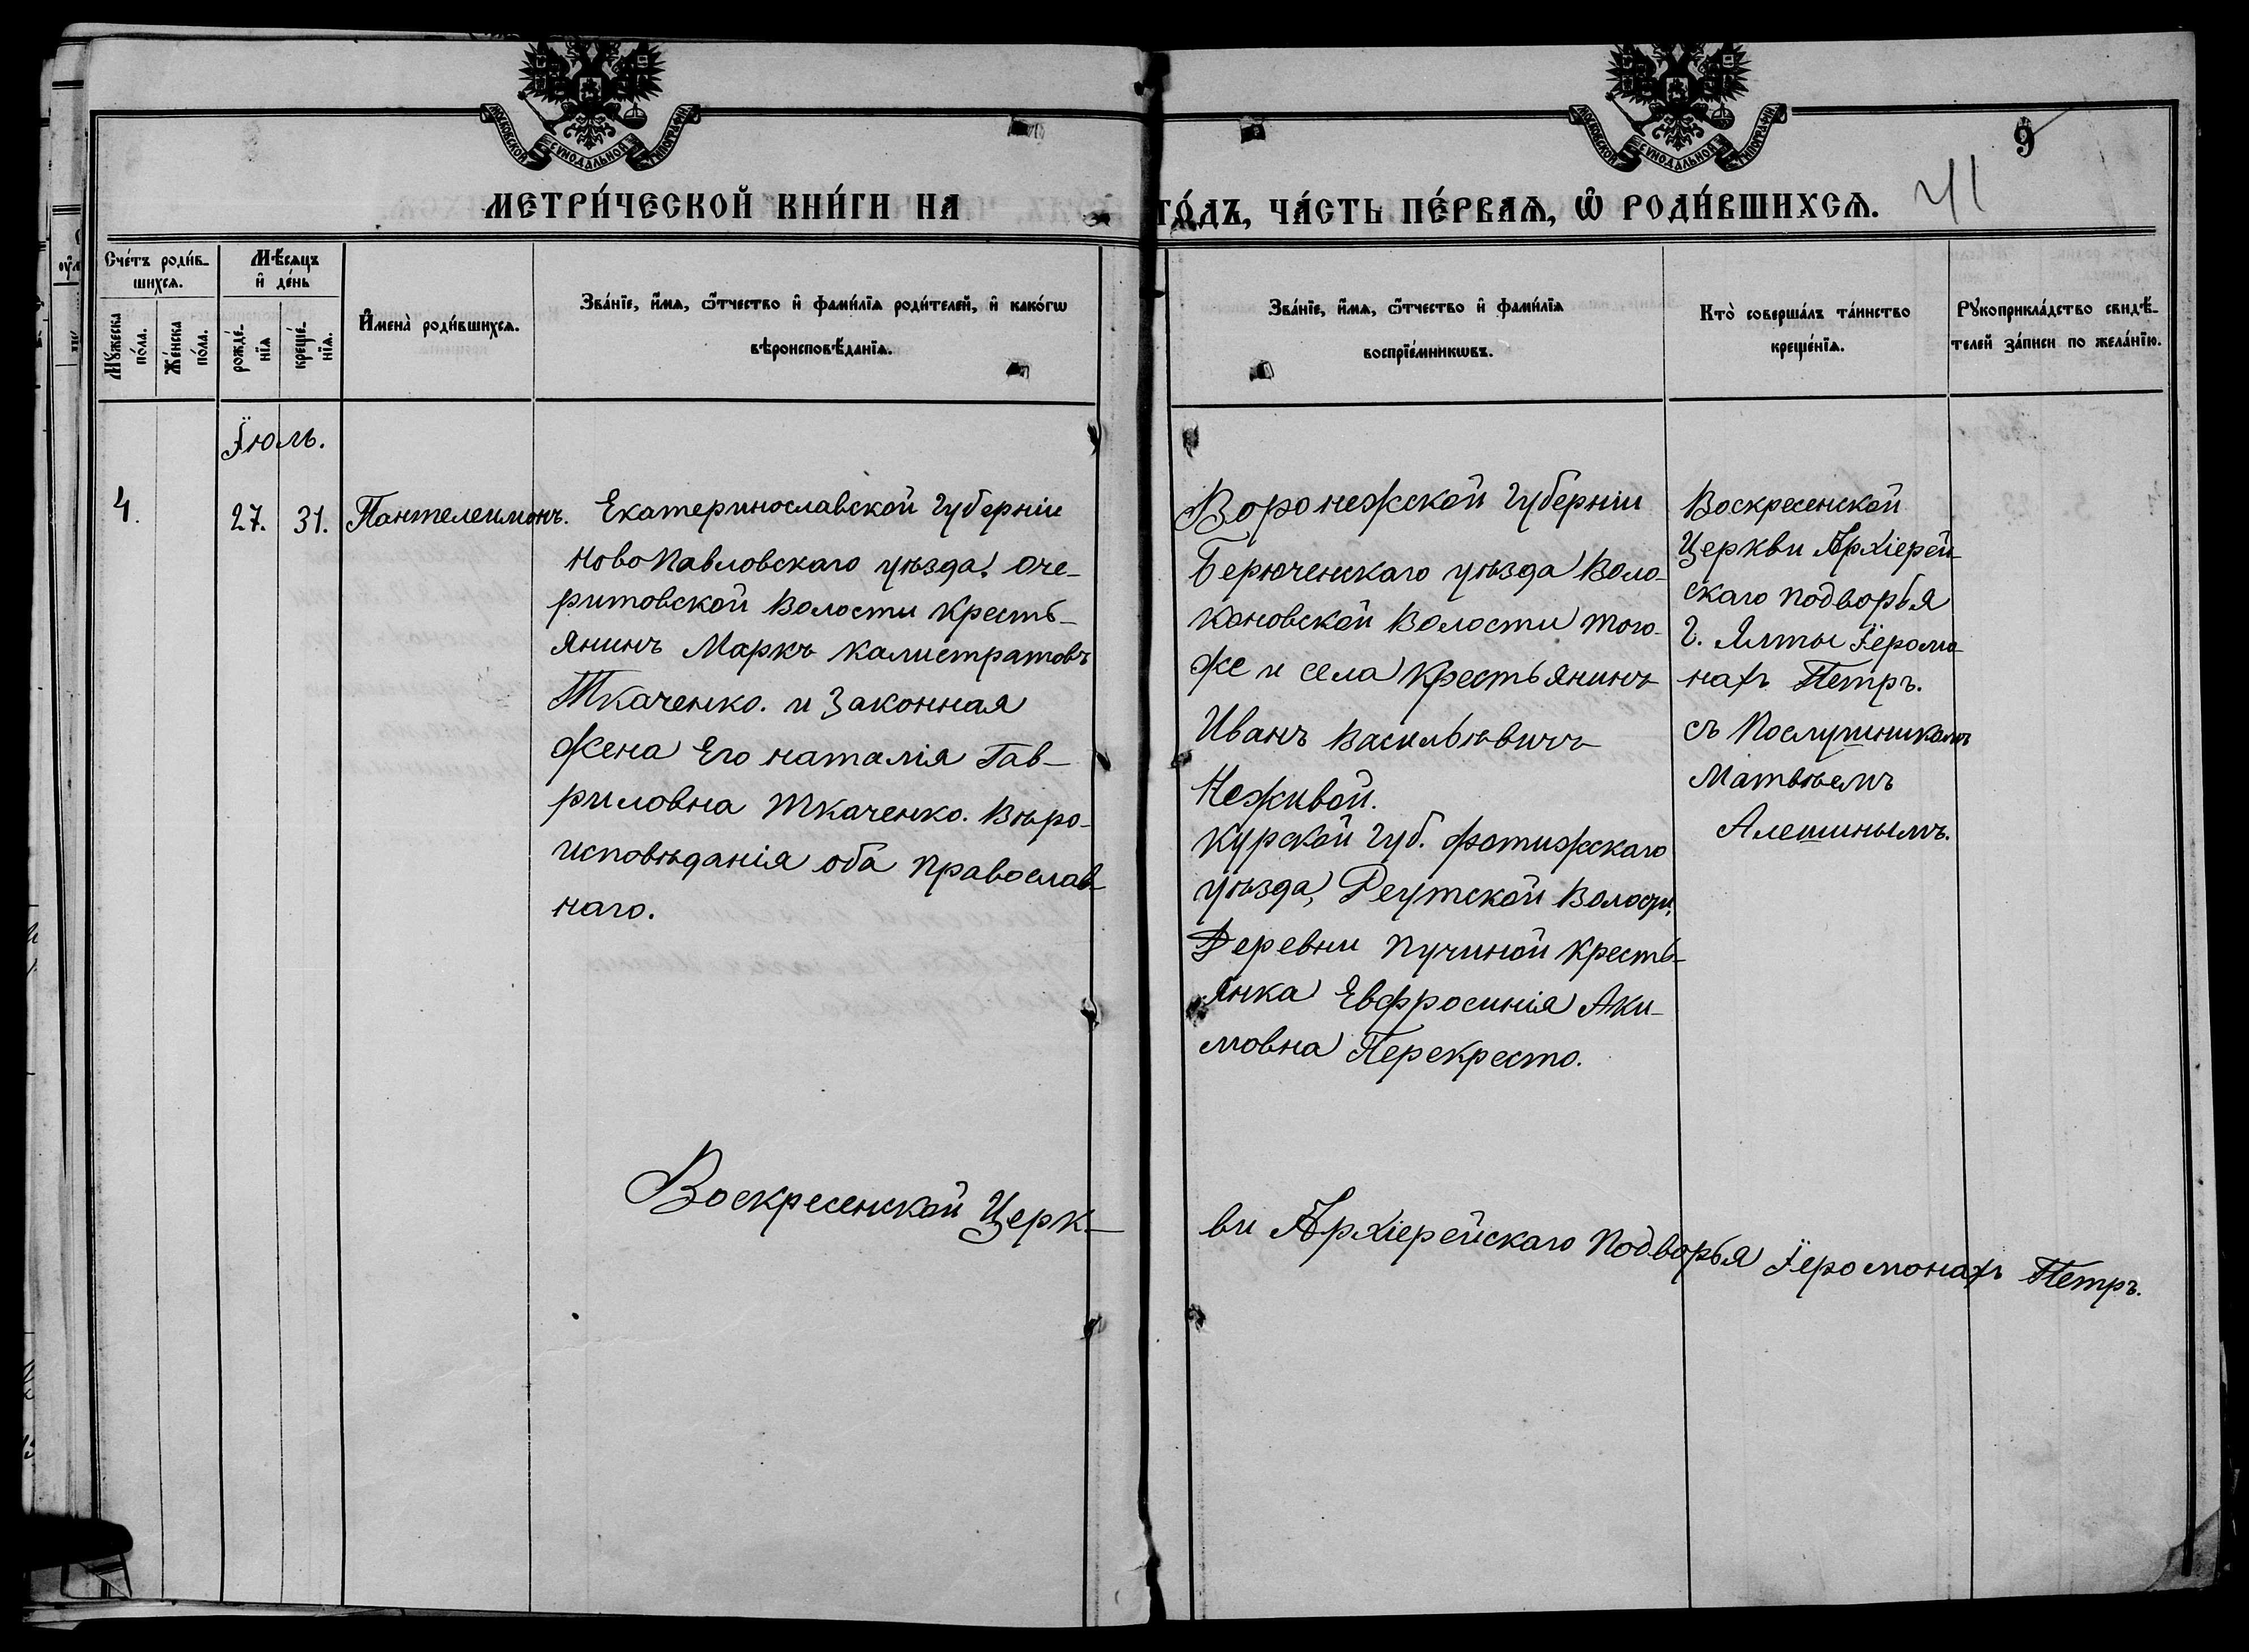 МОСКОВСКОЙ СУНОДАЛЬНОЙ ТИПОГРАФІИ
МОСКОВСКОЙ СУНОДАЛЬНОЙ ТИПОГРАФІИ
9
41
МЕТРИ́ЧЕСКОЙ КНИ́ГИ НА ГО́ДЪ, ЧА́СТЬ ПЕ́РВАѦ, Ѡ҆ РОДИ́ВШИХСѦ.
Сче́тъ роди́в-
шихсѧ.
Мꙋ́жеска
по́ла.
Же́нска
по́ла.
Мѣ́сѧцъ
и҆ де́нь
рожде́-
нїѧ
креще́-
нїѧ.
И҆мена̀ роди́вшихсѧ.
Зва́нїе, и҆́мѧ, ѻ҆́тчество и҆ фами́лїѧ роди́телей, и҆ како́гѡ
вѣроисповѣ́данїѧ.
Зва́нїе, и҆́мѧ, ѻ҆́тчество и҆ фами́лїѧ
воспрїе́мникѡвъ.
Кто̀ соверша́лъ та́инство
креще́нїѧ.
Рꙋкоприкла́дство свидѣ́-
телей за́писи по жела́нїю.
Їюль.
4.
27.
31.
Пантелеимонъ.
Екатеринославской Губерніи
НовоПавловскаго уѣзда. Оче-
ритовской Волости Кресть-
янинъ Маркъ Калистратовъ
Ткаченко. и Законная
Жена Его наталія Гав-
риловна Ткаченко. Вѣро-
исповѣданія оба Православ-
наго.
Воронежской Губерніи
Берюченскаго уѣзда Воло-
коновской Волости того-
же и села Крестьянинъ
Иванъ Васильѣвичъ
Неживой.
Курской Губ. Фотижскаго
уѣзда, Реутской Волости,
Деревни Пучиной Кресть-
янка Евфросинія Аки-
мовна Перекресто.
Воскресенской
Церкви Архіерей-
скаго Подворья
Г. Ялты Їеромо-
нахъ Петръ.
съ Послушникомъ
Матвѣемъ
Алешинымъ.
Воскресенской Церк-
ви Архіерейскаго Подворья Їеромонахъ Петръ.